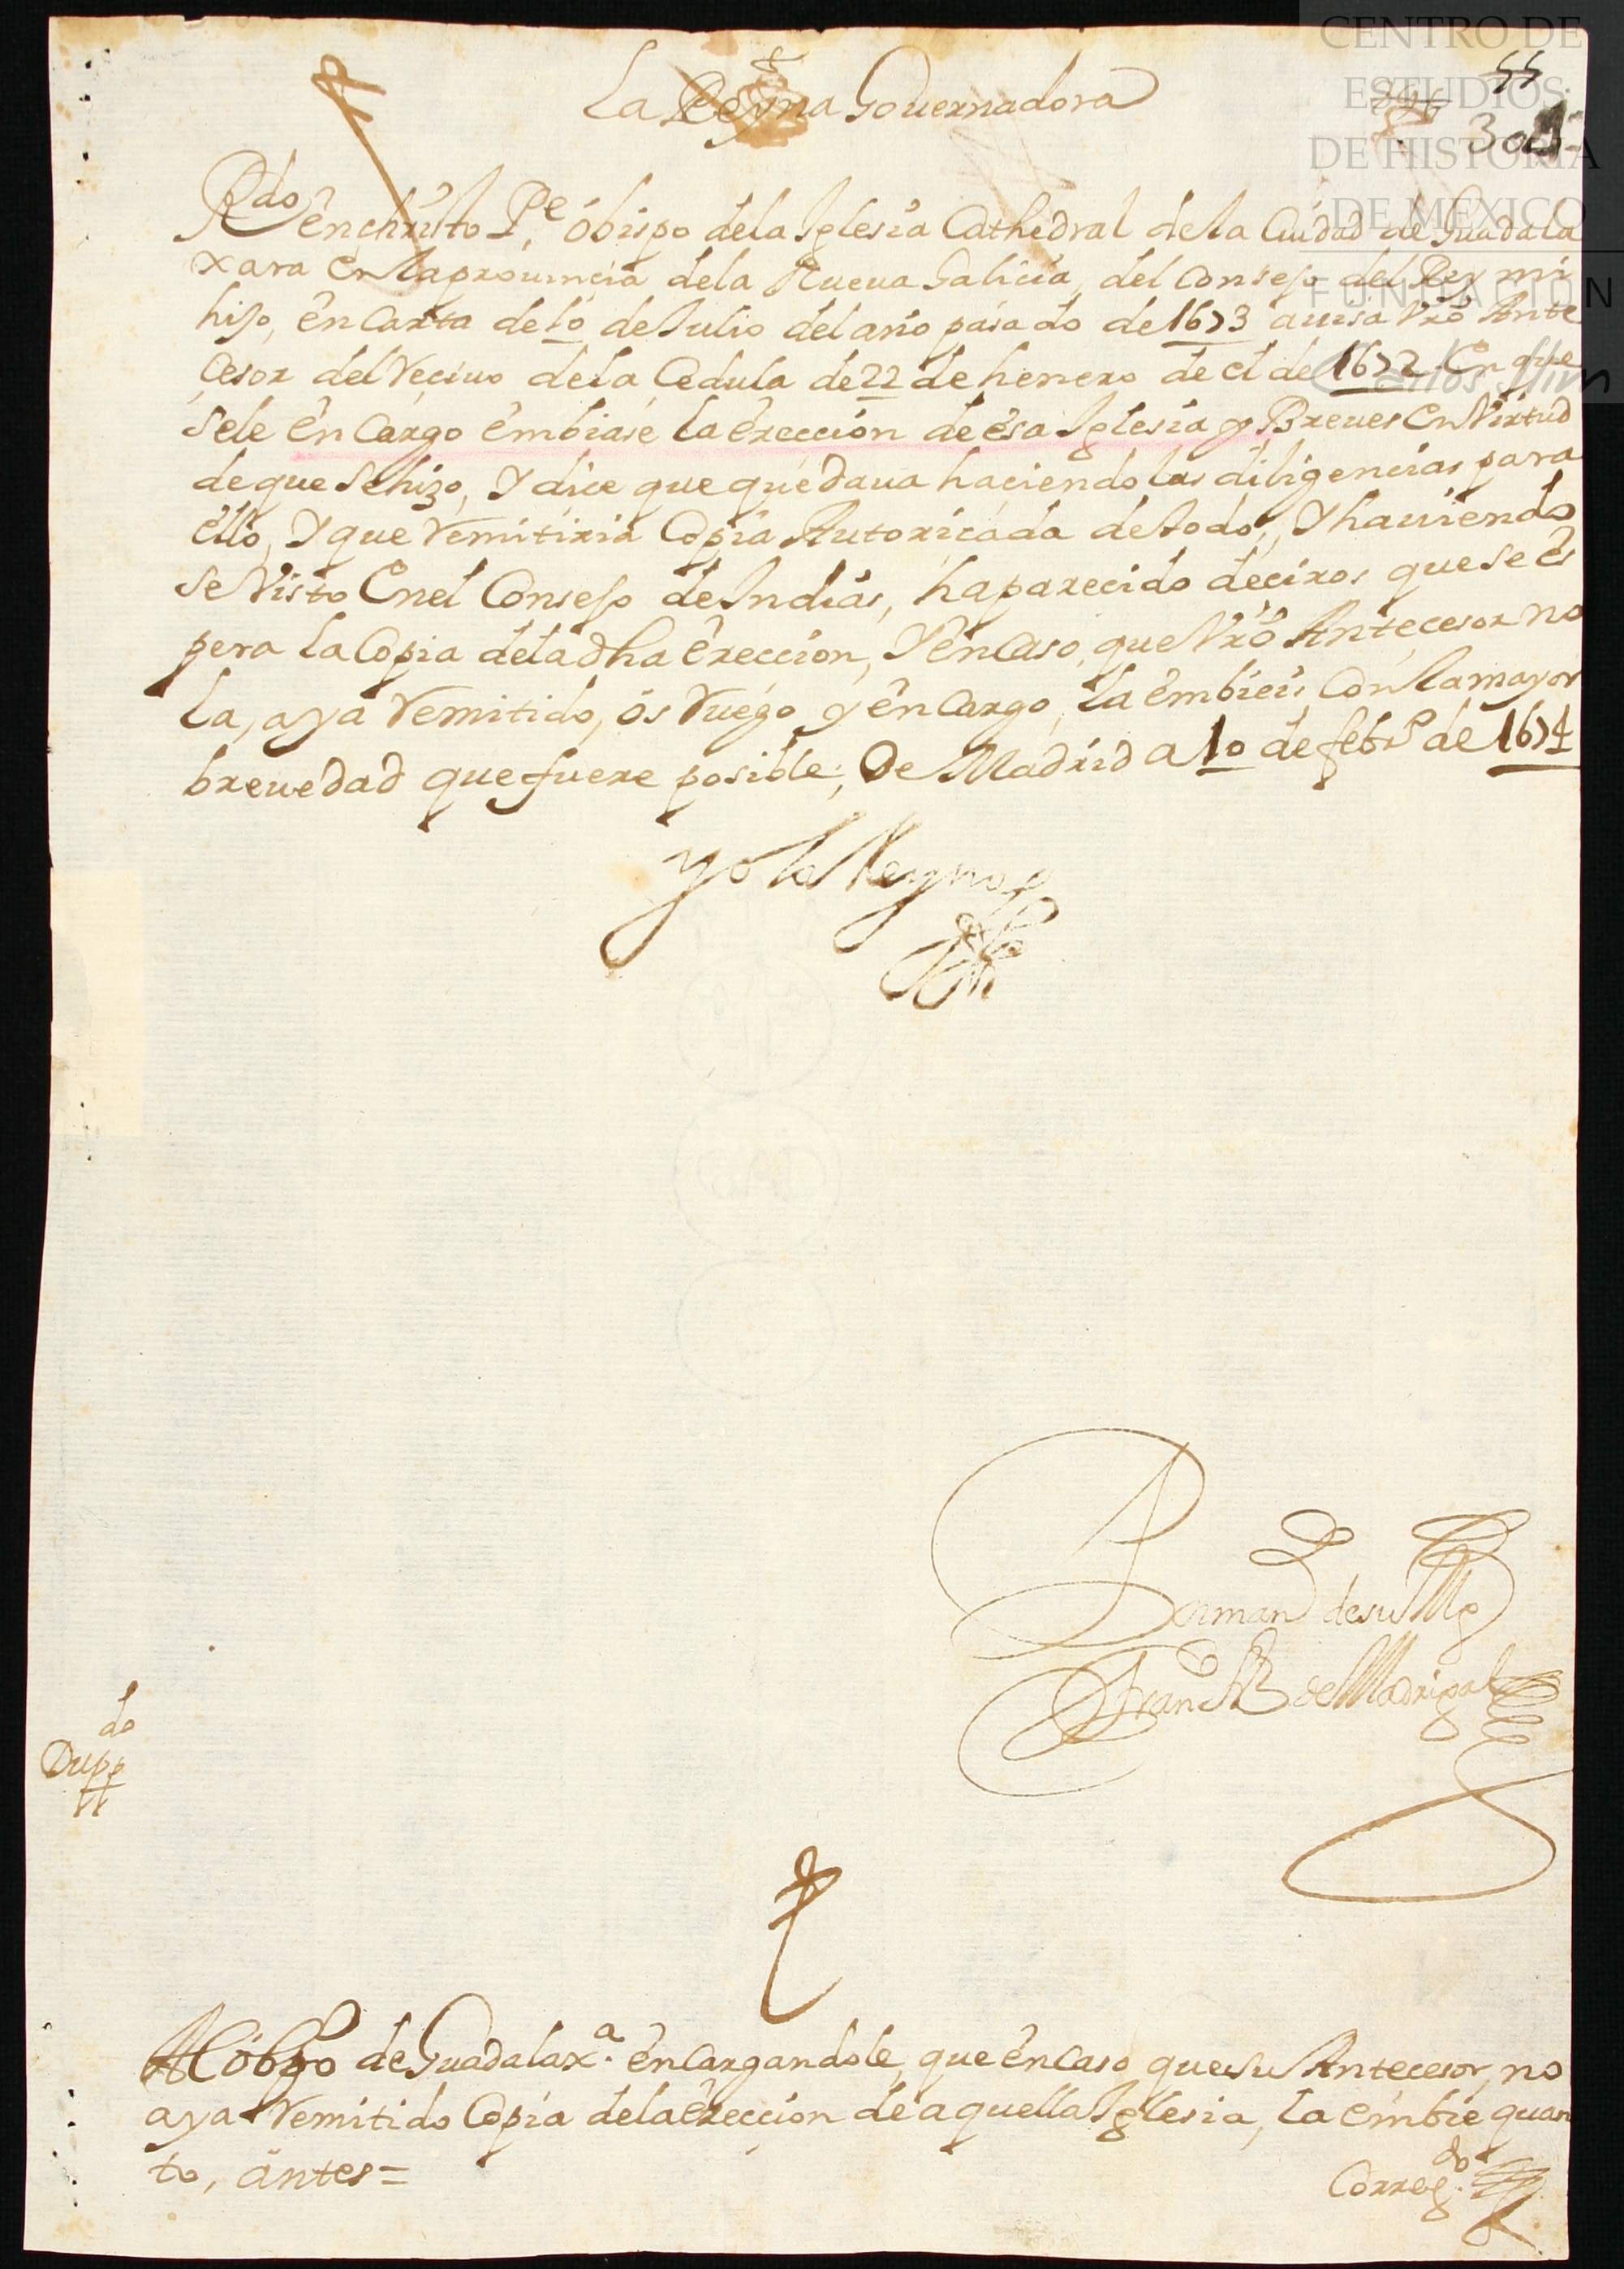 CENTRO DE
ESTUDIOS
DE HISTORIA
DE MEXICO
FUNDACIÓN
Carlos Slim
55
La Reyna Gouernadora
Rdo en christo Pe, obispo de la Iglesia Cathedral de la Ciudad de Guadala
xara en la prouincia de la Nueua Galicia, del consejo del Rey mi
hijo, en carta de 10 de Julio del año pasado de 1673 auisa Vro Ante
cesor del reciuo de la Cedula de 22 de henero de el de 1672. En que
se le encargo embiase la ereccion de esa Iglesia y Breues en Virtud
de que se hizo, Y dice que quedaua haciendo las diligencias para
ello, Y que remitiria Copia Autoricada de todo, Y hauiendo
se Visto en el Consejo de Indias, ha parecido deciros que se es
pera la Copia de la dha ereccion, Y en caso, que Vro Antecesor no
la, aya remitido, os ruego y encargo, la embieis con la mayor
breuedad que fuere posible, De Madrid a 10 de febro de 1674
Yo la Reyna
Por mando de su Mgd
Franco Frz de Madrigal
Duppdo
Al obpo de Guadalaxa. encargandole, que en caso que su Antecesor, no
aya remitido Copia de la ereccion de aquella Iglesia, la embie quan
to, antes =
Corregdo.